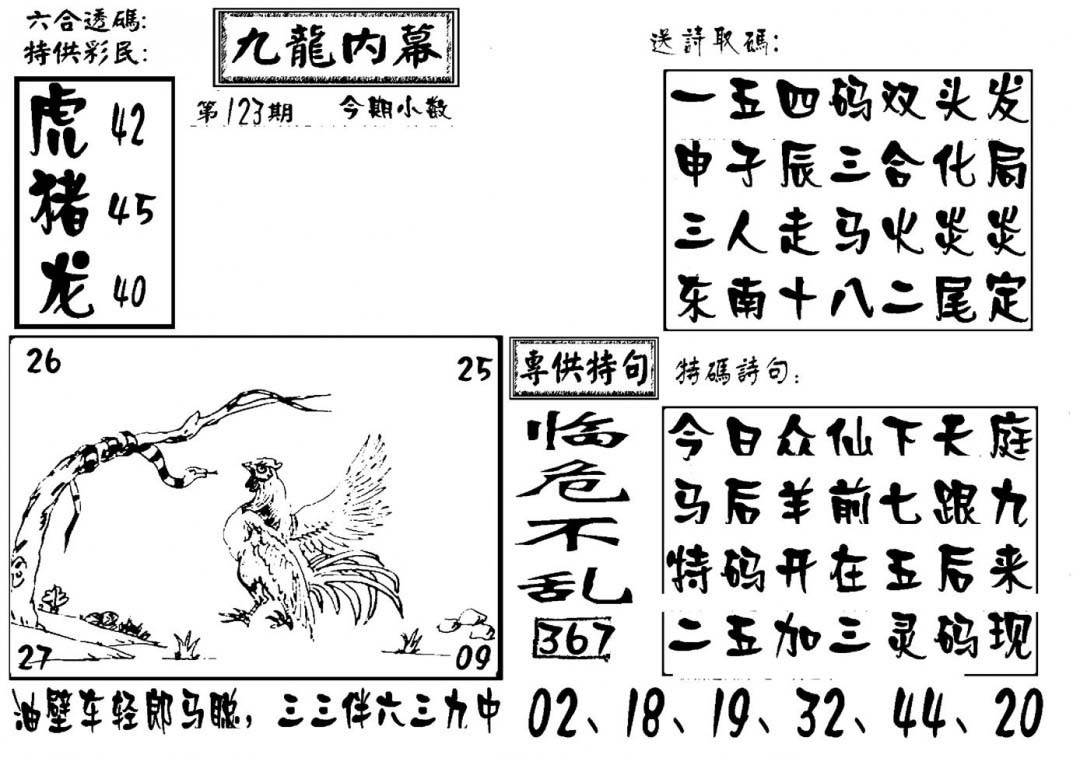 六合透碼:
特供彩民:
九龍内幕
第123期 今期小数
虎 42
猪 45
龙 40
送詩取碼:
一五四码双头发
申子辰三合化局
三人走马火炎炎
东南十八二尾定
26
25
27
09
專供特句
临危不乱
367
特碼詩句:
今日众仙下天庭
马后羊前七跟九
特码开在五后来
二五加三灵码现
油壁车轻郎马骢,三三伴六三九中
02、18、19、32、44、20